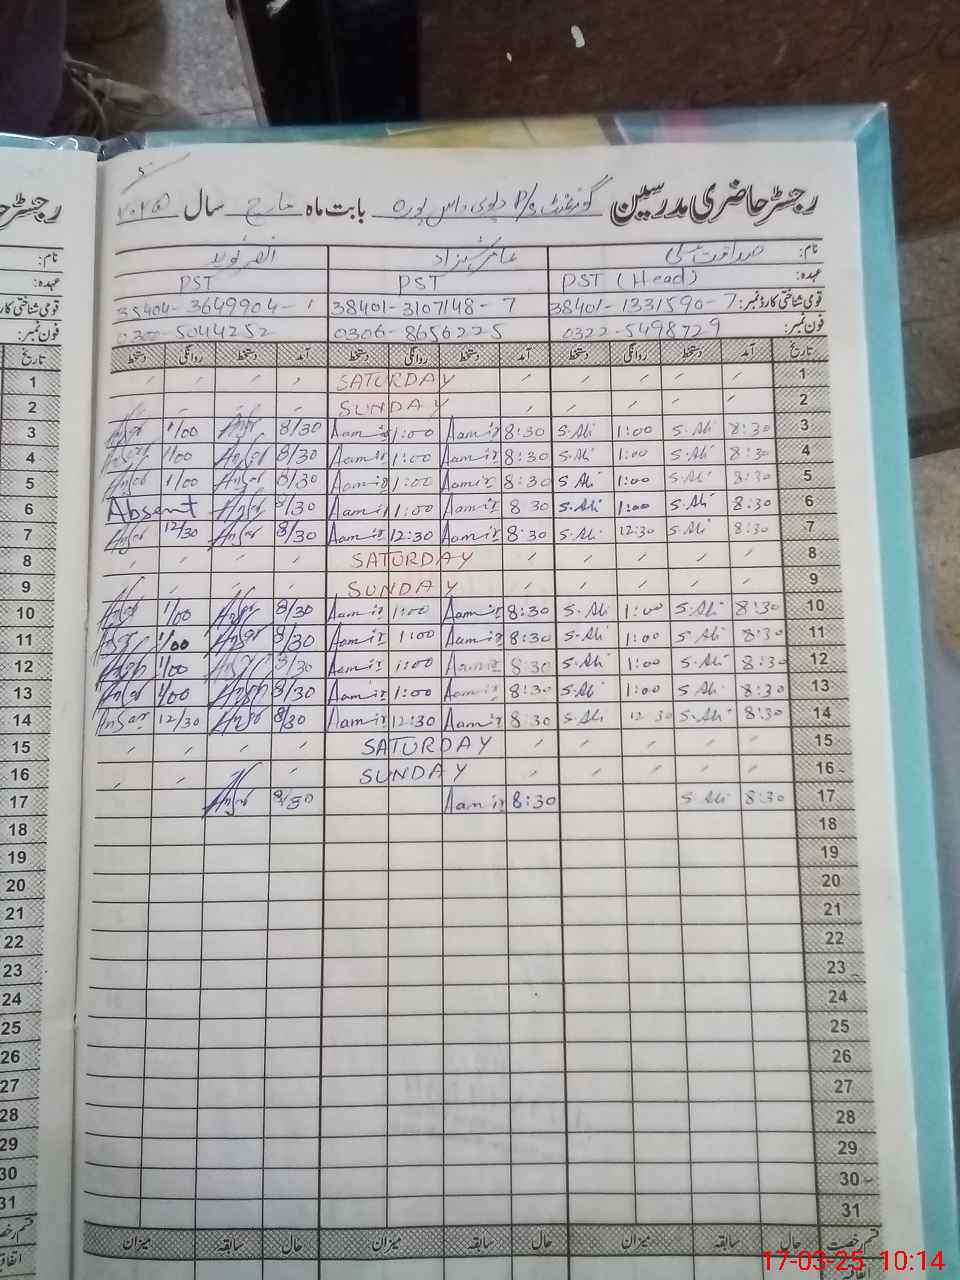 رجسٹر حاضری مدرسین گورنمنٹ P/S دیوی داس پورہ بابت ماہ مارچ سال ۲۰۲۵
نام: صداقت علی عامر شہزاد انصر نوید
عہدہ: PST (Head) PST PST
قومی شناختی کارڈ نمبر: 38401-1331590-7 38401-3107148-7 35404-3649904-1
فون نمبر: 0322-5498729 0306-8656225 0300-5044252
تاریخ آمد دستخط روانگی دستخط آمد دستخط روانگی دستخط آمد دستخط روانگی دستخط
1 SATURDAY
2 SUNDAY
3 8:30 S.Ali 1:00 S.Ali 8:30 Aamir 1:00 Aamir 8/30 Ansar 1/00 Ansar
4 8:30 S.Ali 1:00 S.Ali 8:30 Aamir 1:00 Aamir 8/30 Ansar 1/00 Ansar
5 8:30 S.Ali 1:00 S.Ali 8:30 Aamir 1:00 Aamir 8/30 Ansar 1/00 Ansar
6 8:30 S.Ali 1:00 S.Ali 8 30 Aamir 1:00 Aamir 8/30 Ansar Absent
7 8:30 S.Ali 12:30 S.Ali 8:30 Aamir 12:30 Aamir 8/30 Ansar 12/30 Ansar
8 SATURDAY
9 SUNDAY
10 8:30 S.Ali 1:00 S.Ali 8:30 Aamir 1:00 Aamir 8/30 Ansar 1/00 Ansar
11 8:30 S.Ali 1:00 S.Ali 8:30 Aamir 1:00 Aamir 8/30 Ansar 1/00 Ansar
12 8:30 S.Ali 1:00 S.Ali 8:30 Aamir 1:00 Aamir 8/30 Ansar 1/00 Ansar
13 8:30 S.Ali 1:00 S.Ali 8:30 Aamir 1:00 Aamir 8/30 Ansar 1/00 Ansar
14 8:30 S.Ali 12 30 S.Ali 8:30 Aamir 12:30 Aamir 8/30 Ansar 12/30 Ansar
15 SATURDAY
16 SUNDAY
17 8:30 S.Ali 8:30 Aamir 8/30 Ansar
18
19
20
21
22
23
24
25
26
27
28
29
30
31
قسم رخصت حال سابقہ میزان حال سابقہ میزان حال سابقہ میزان
17-03-25 10:14